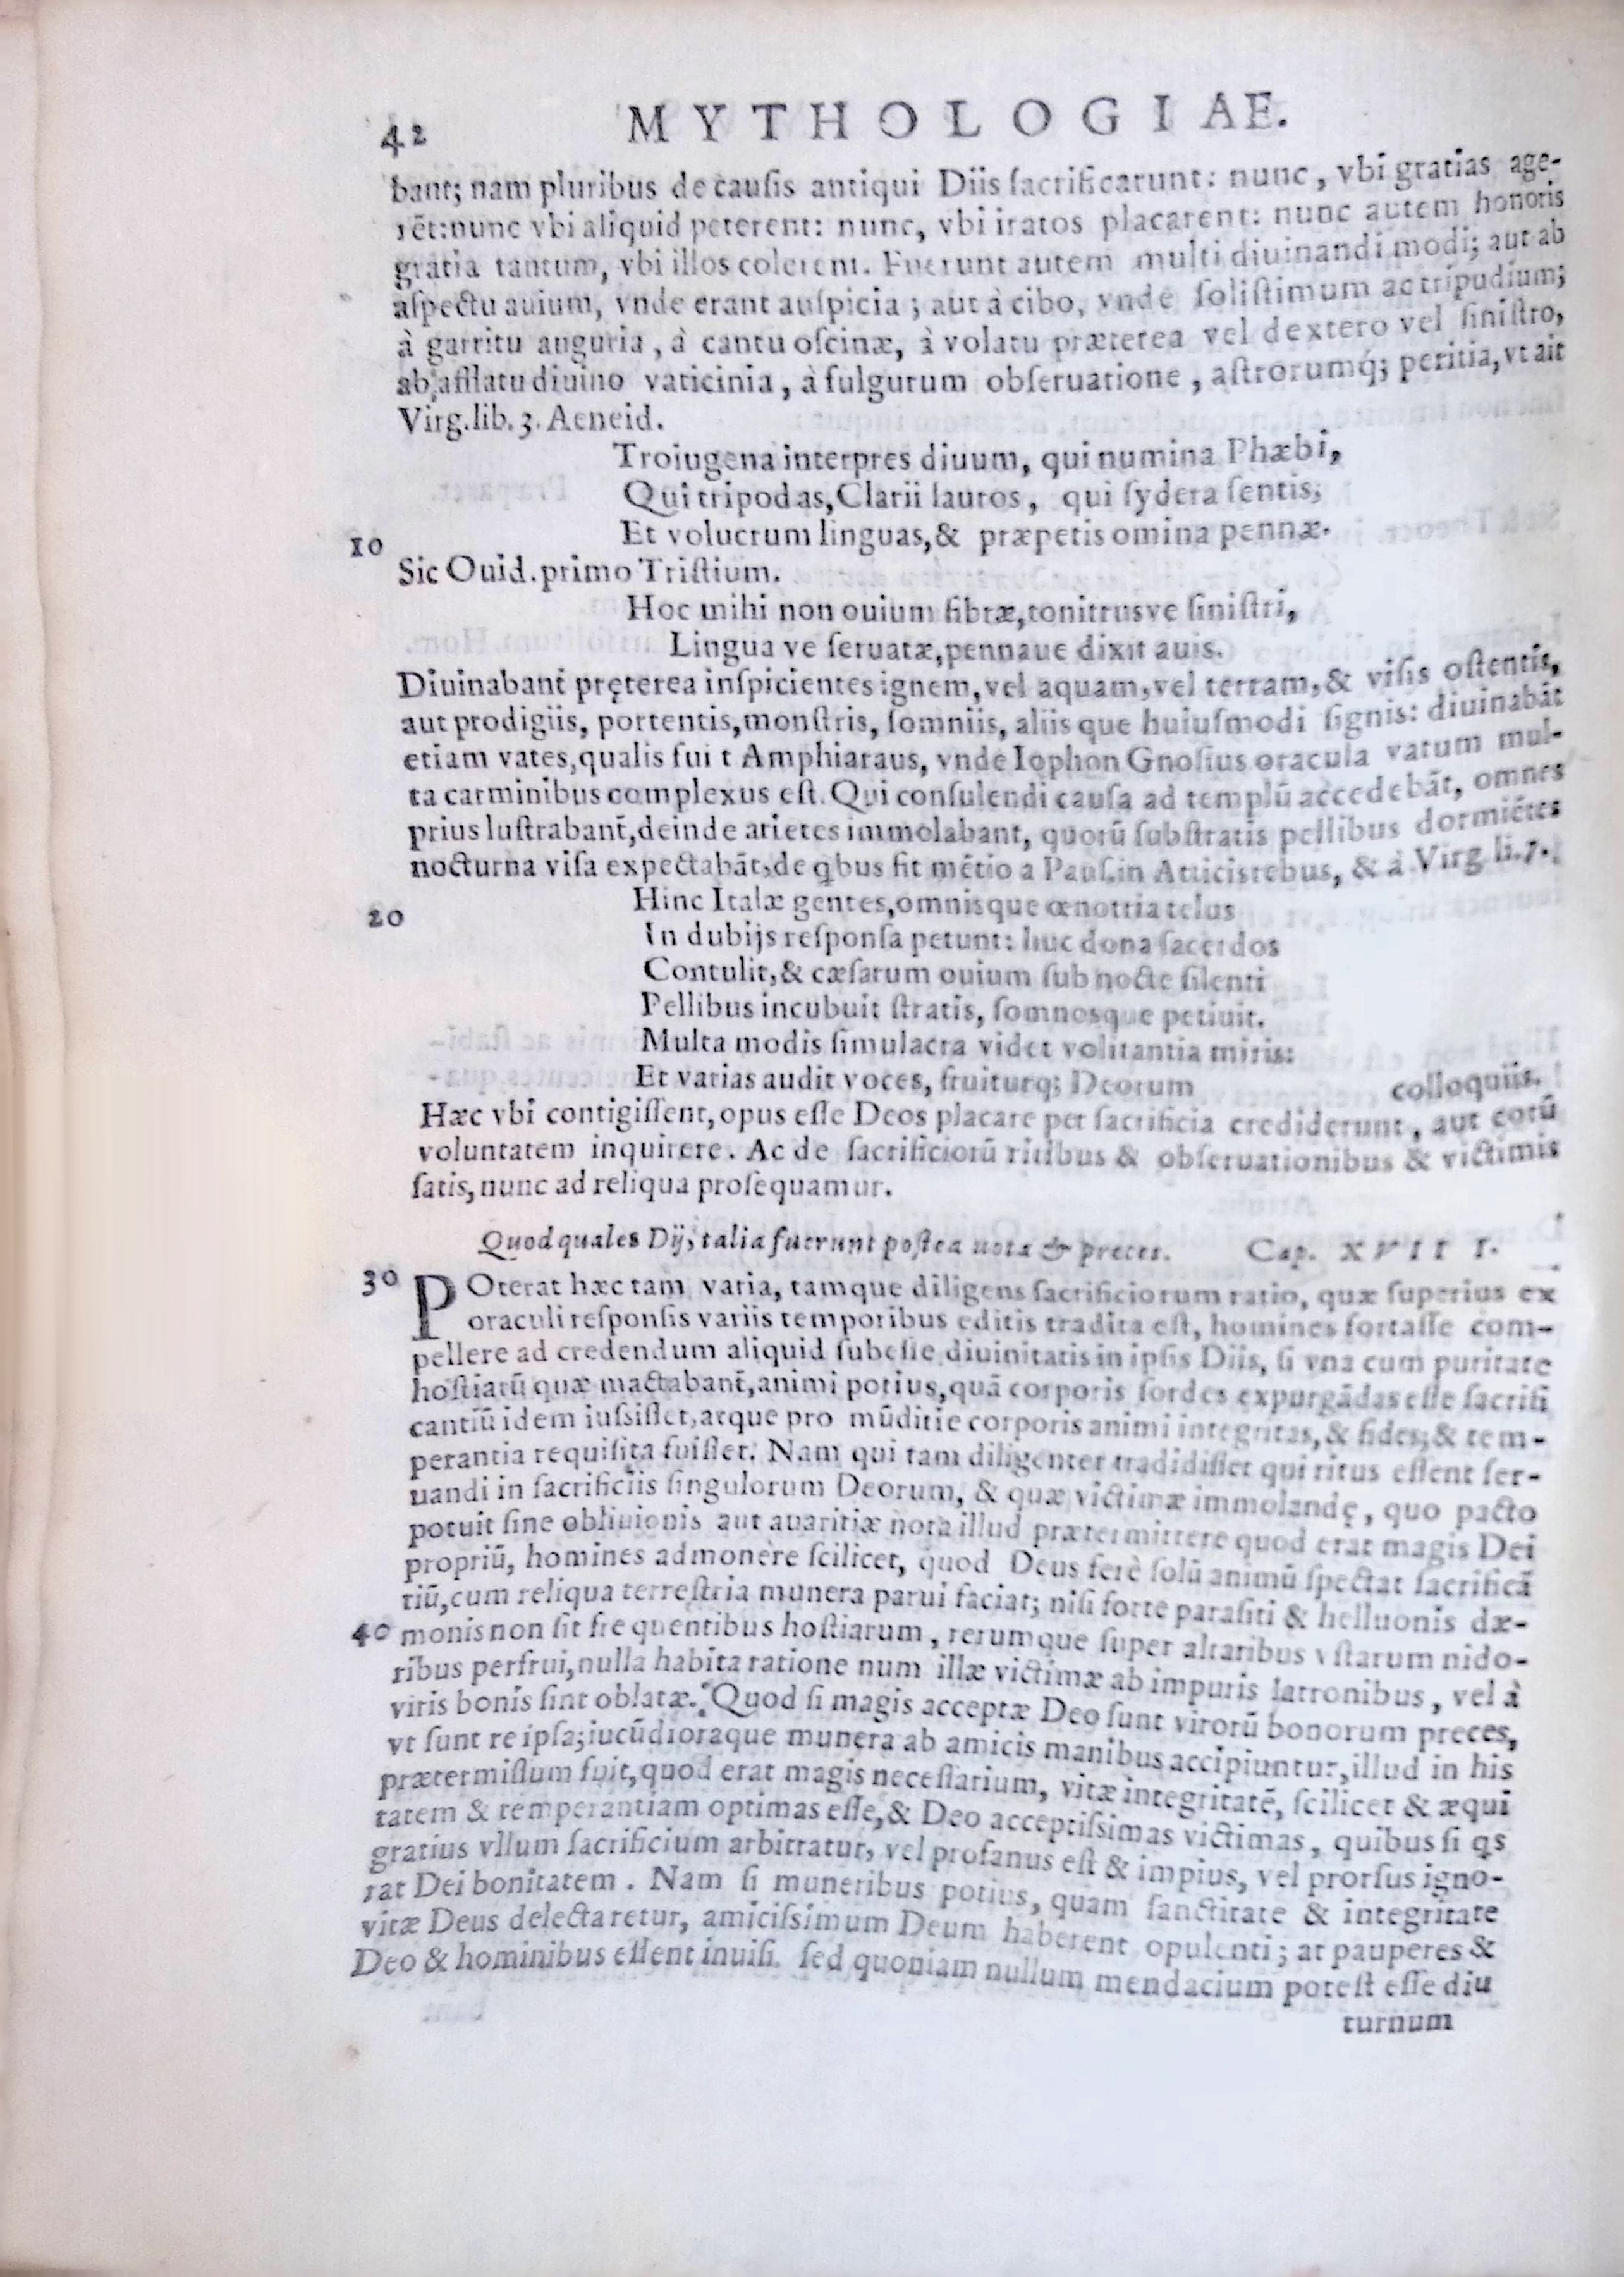 42 MYTHOLOGIAE.
bant; nam pluribus de cauſis antiqui Diis ſacrificarunt: nunc, vbi gratias age-
rẽt:nunc vbi aliquid peterent: nunc, vbi iratos placarent: nunc autem honoris
gratia tantum, vbi illos colerent. Fuerunt autem multi diuinandi modi; aut ab
aſpectu auium, vnde erant auſpicia; aut à cibo, vnde ſoliſtimum ac tripudium;
à garritu auguria, à cantu oſcinæ, à volatu præterea vel dextero vel ſiniſtro,
ab afflatu diuino vaticinia, à fulgurum obſeruatione, aſtrorumq́; peritia, vt ait
Virg.lib.3. Aeneid.
Troiugena interpres diuum, qui numina Phæbi,
Qui tripodas, Clarii lauros, qui ſydera ſentis;
10 Et volucrum linguas,& præpetis omina pennæ.
Sic Ouid.primo Triſtium.
Hoc mihi non ouium fibræ,tonitrusve ſiniſtri,
Lingua ve ſeruatæ,pennaue dixit auis.
Diuinabant̃ pręterea inſpicientes ignem, vel aquam, vel terram,& viſis oſtentis,
aut prodigiis, portentis, monſtris, ſomniis, aliis que huiuſmodi ſignis: diuinabãt
etiam vates,qualis fui t Amphiaraus, vnde Iophon Gnoſius oracula vatum mul-
ta carminibus complexus eſt. Qui conſulendi cauſa ad templũ accedebãt, omnes
prius luſtrabant̃,deinde arietes immolabant, quorũ ſubſtratis pellibus dormiẽtes
nocturna viſa expectabãt,de qbus fit mẽtio a Pauſ.in Atticis rebus, & à Virg li.7.
20 Hinc Italæ gentes,omnisque œnotria telus
In dubijs reſponſa petunt: huc dona ſacerdos
Contulit,& cæſarum ouium ſub nocte ſilenti
Pellibus incubuit ſtratis, ſomnosque petiuit.
Multa modis ſimulacra videt volitantia miris:
Et varias audit voces, fruiturq; Deorum colloquiis.
Hæc vbi contigiſſent,opus eſſe Deos placare per ſacrificia crediderunt, aut eorũ
voluntatem inquirere. Ac de ſacrificiorũ ritibus & obſeruationibus & victimis
ſatis,nunc ad reliqua proſequamur.
Quod quales Dij, talia fuerunt poſtea uota & preces. Cap. XVIII.
30 POterat hæc tam varia, tamque diligens ſacrificiorum ratio, quæ ſuperius ex
oraculi reſponſis variis temporibus editis tradita eſt, homines fortaſſe com-
pellere ad credendum aliquid ſubeſſe diuinitatis in ipſis Diis, ſi vna cum puritate
hoſtiarũ quæ mactabant̃,animi potius,quã corporis ſordes expurgãdas eſſe ſacrifi
cantiũ idem iuſsiſſet,atque pro mũditie corporis animi integritas,& fides;& tem-
perantia requiſita fuiſſet. Nam qui tam diligenter tradidiſſet qui ritus eſſent ſer-
uandi in ſacrificiis ſingulorum Deorum, & quæ victimæ immolandę, quo pacto
potuit ſine obliuionis aut auaritiæ nota illud prætermittere quod erat magis Dei
propriũ, homines admonere ſcilicet, quod Deus ferè ſolũ animũ ſpectat ſacrificã
tiũ,cum reliqua terreſtria munera parui faciat; niſi forte paraſiti & helluonis dæ-
40 monis non ſit fre quentibus hoſtiarum, rerumque ſuper altaribus vſtarum nido-
ribus perfrui,nulla habita ratione num illæ victimæ ab impuris latronibus, vel à
viris bonis ſint oblatæ. Quod ſi magis acceptæ Deo ſunt virorũ bonorum preces,
vt ſunt re ipſa;iucũdioraque munera ab amicis manibus accipiuntur,illud in his
prætermiſſum fuit,quod erat magis neceſſarium, vitæ integritatẽ, ſcilicet & æqui
tatem & temperantiam optimas eſſe,& Deo acceptiſsimas victimas, quibus ſi qs
gratius vllum ſacrificium arbitratur, vel profanus eſt & impius, vel prorſus igno-
rat Dei bonitatem. Nam ſi muneribus potius, quam ſanctitate & integritate
vitæ Deus delectaretur, amiciſsimum Deum haberent opulenti; at pauperes &
Deo & hominibus eſſent inuiſi. ſed quoniam nullum mendacium poteſt eſſe diu
turnum